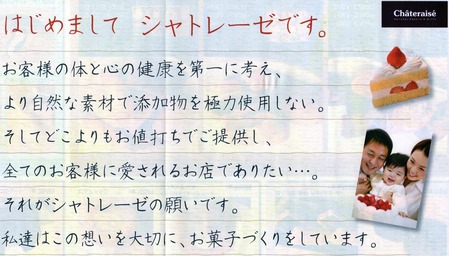 はじめまして シャトレーゼです。
Châteraisé
お客様の体と心の健康を第一に考え、
より自然な素材で添加物を極力使用しない。
そしてどこよりもお値打ちでご提供し、
全てのお客様に愛されるお店でありたい…。
それがシャトレーゼの願いです。
私達はこの想いを大切に、お菓子づくりをしています。